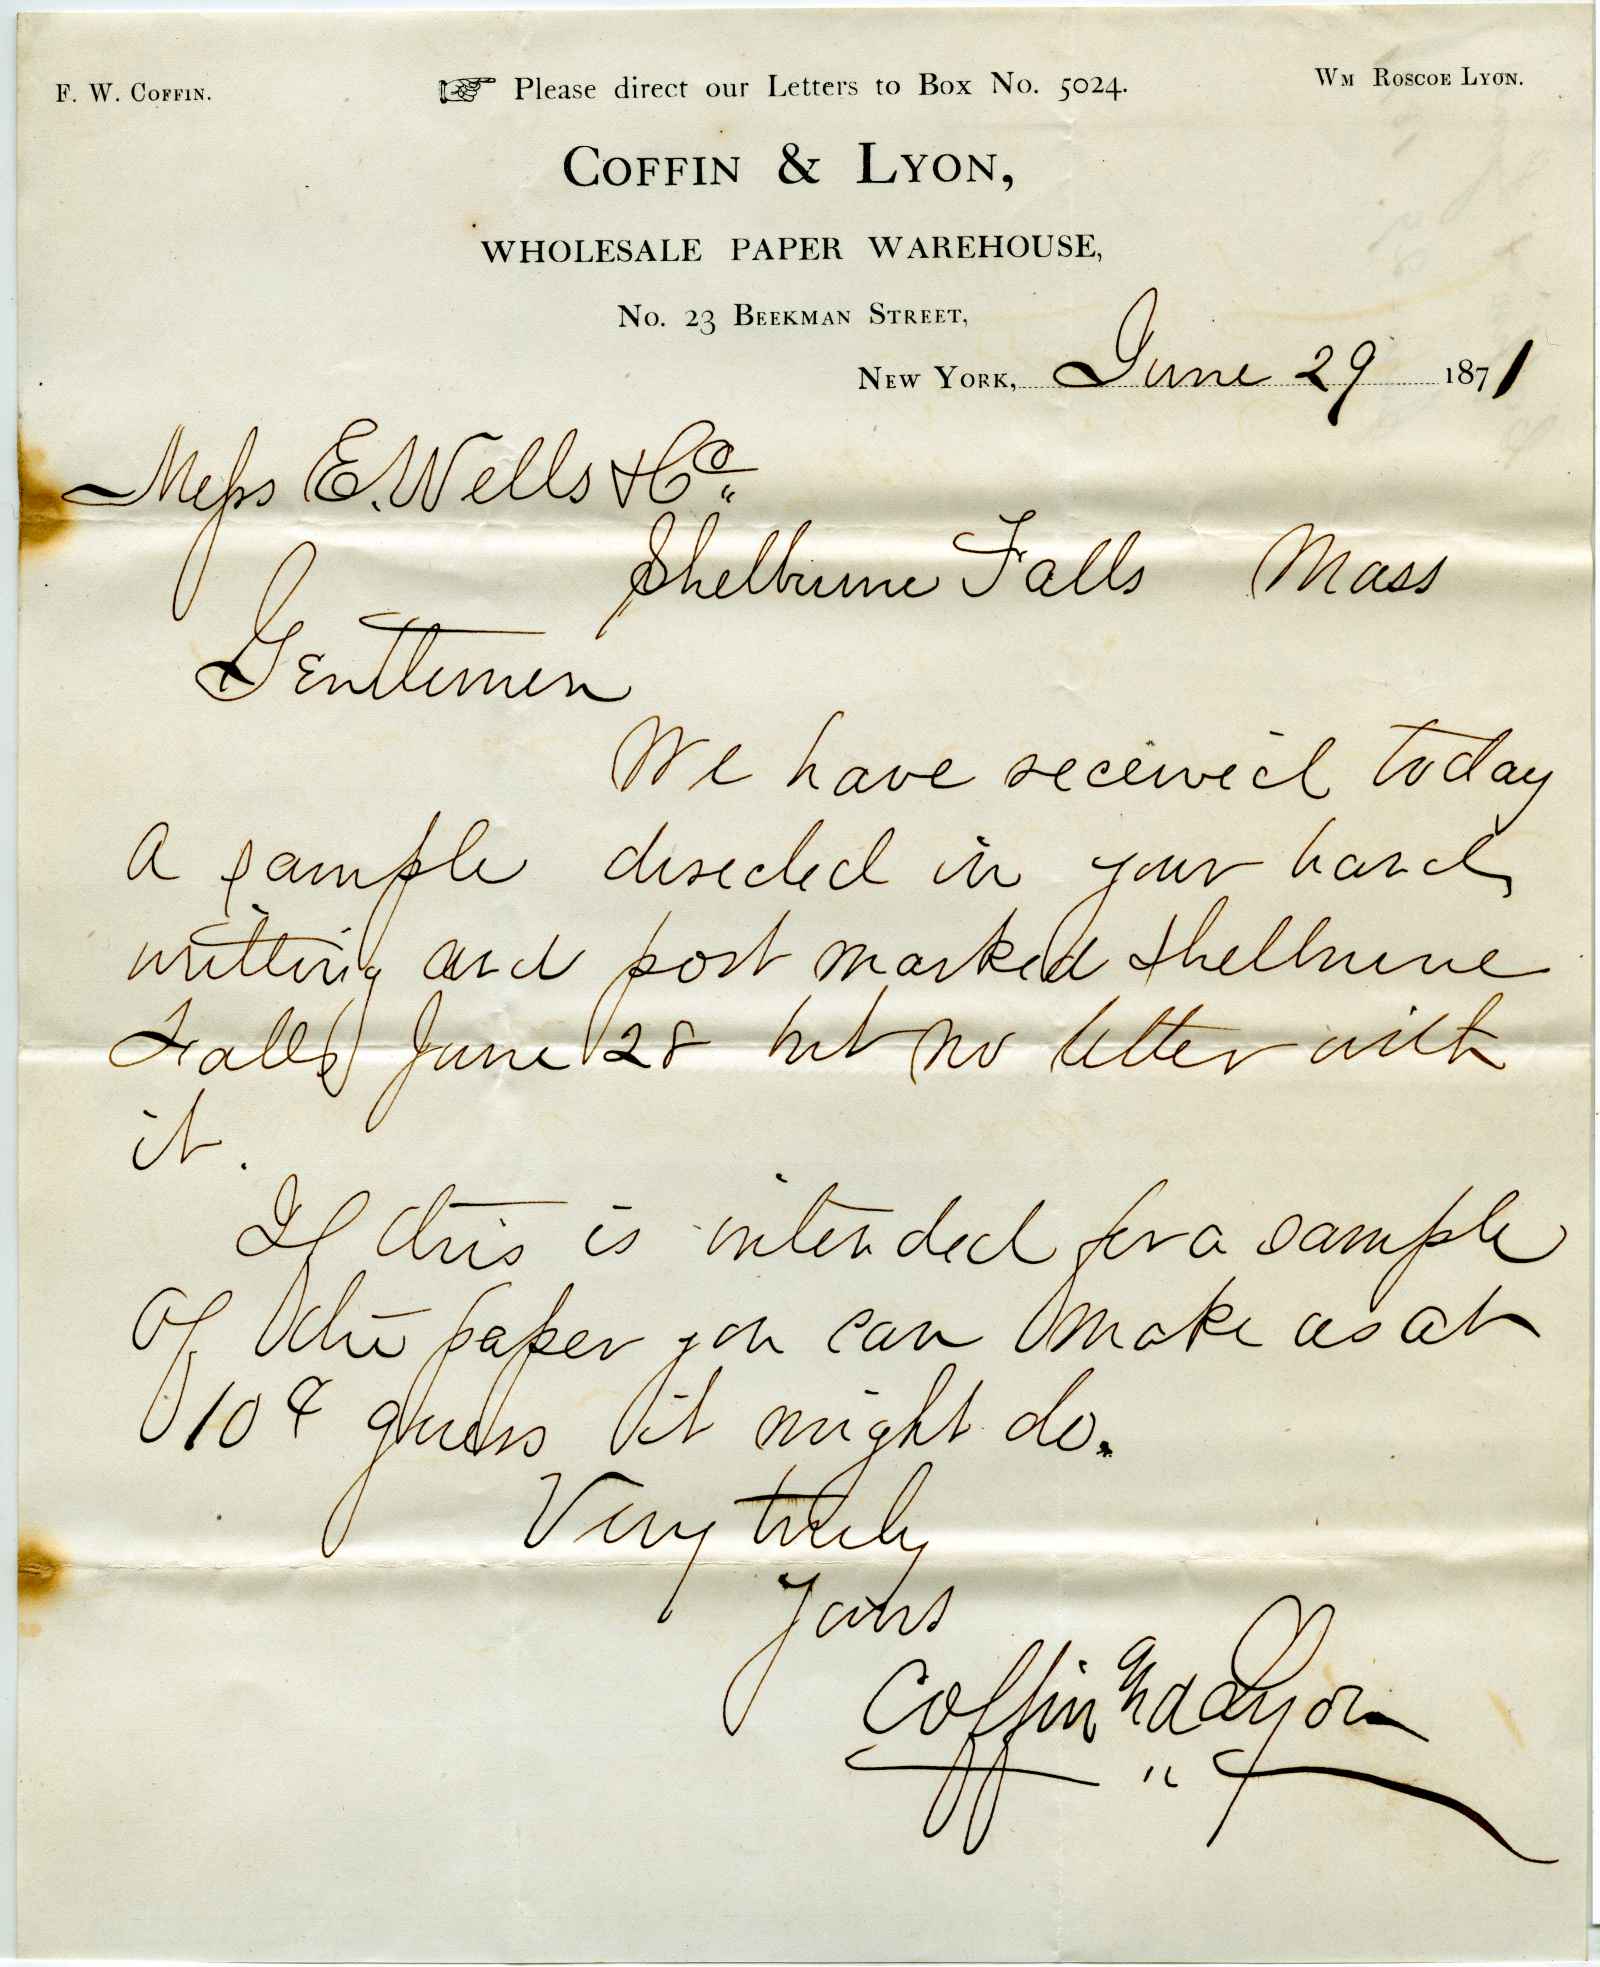 F. W. Coffin.
☞ Please direct our Letters to Box No. 5024.
Wm Roscoe Lyon.
Coffin & Lyon,
WHOLESALE PAPER WAREHOUSE,
No. 23 Beekman Street,
New York, June 29 1871
Mess E. Wells & Co.
Shelburne Falls Mass
Gentlemen
We have received today
a sample directed in your hand
writting and post marked Shelburne
Falls June 28 but no letter with
it.
If this is intended for a sample
of the paper you can make us at
10¢ guess it might do.
Very truly
Yours
Coffin and Lyon